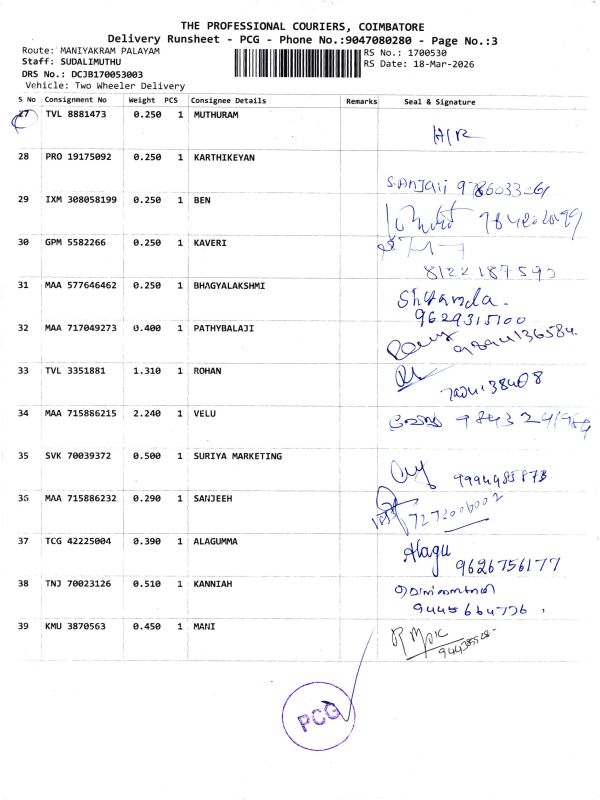 THE PROFESSIONAL COURIERS, COIMBATORE
Delivery Runsheet - PCG - Phone No.:9047080280 - Page No.:3
Route: MANIYAKRAM PALAYAM
RS No.: 1700530
Staff: SUDALIMUTHU
RS Date: 18-Mar-2026
DRS No.: DCJB170053003
Vehicle: Two Wheeler Delivery
S No Consignment No Weight PCS Consignee Details Remarks Seal & Signature
27 TVL 8881473 0.250 1 MUTHURAM
H/R
28 PRO 19175092 0.250 1 KARTHIKEYAN
29 IXM 308058199 0.250 1 BEN
30 GPM 5582266 0.250 1 KAVERI
31 MAA 577646462 0.250 1 BHAGYALAKSHMI
9629315100
32 MAA 717049273 0.400 1 PATHYBALAJI
33 TVL 3351881 1.310 1 ROHAN
34 MAA 715886215 2.240 1 VELU
35 SVK 70039372 0.500 1 SURIYA MARKETING
9994485873
36 MAA 715886232 0.290 1 SANJEEH
37 TCG 42225004 0.390 1 ALAGUMMA
Alagu
9626756177
38 TNJ 70023126 0.510 1 KANNIAH
39 KMU 3870563 0.450 1 MANI
PCG